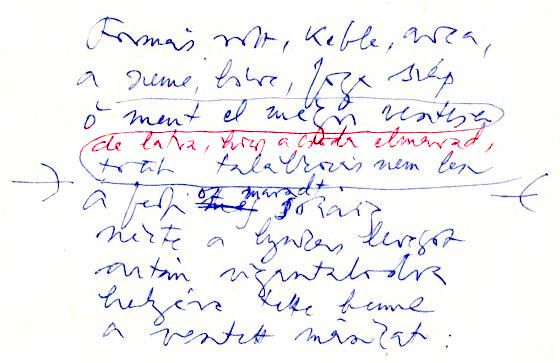 Formás volt, keble, arca,
a szeme, bőre, foga szép
ő ment el mégis vesztesen
de látva, hogy a csoda elmarad,
több találkozás nem lesz
a férfi ott maradt sokáig
nézte a lyukas levegőt
aztán vigasztalódva
helyére tette benne
a vesztett mását.